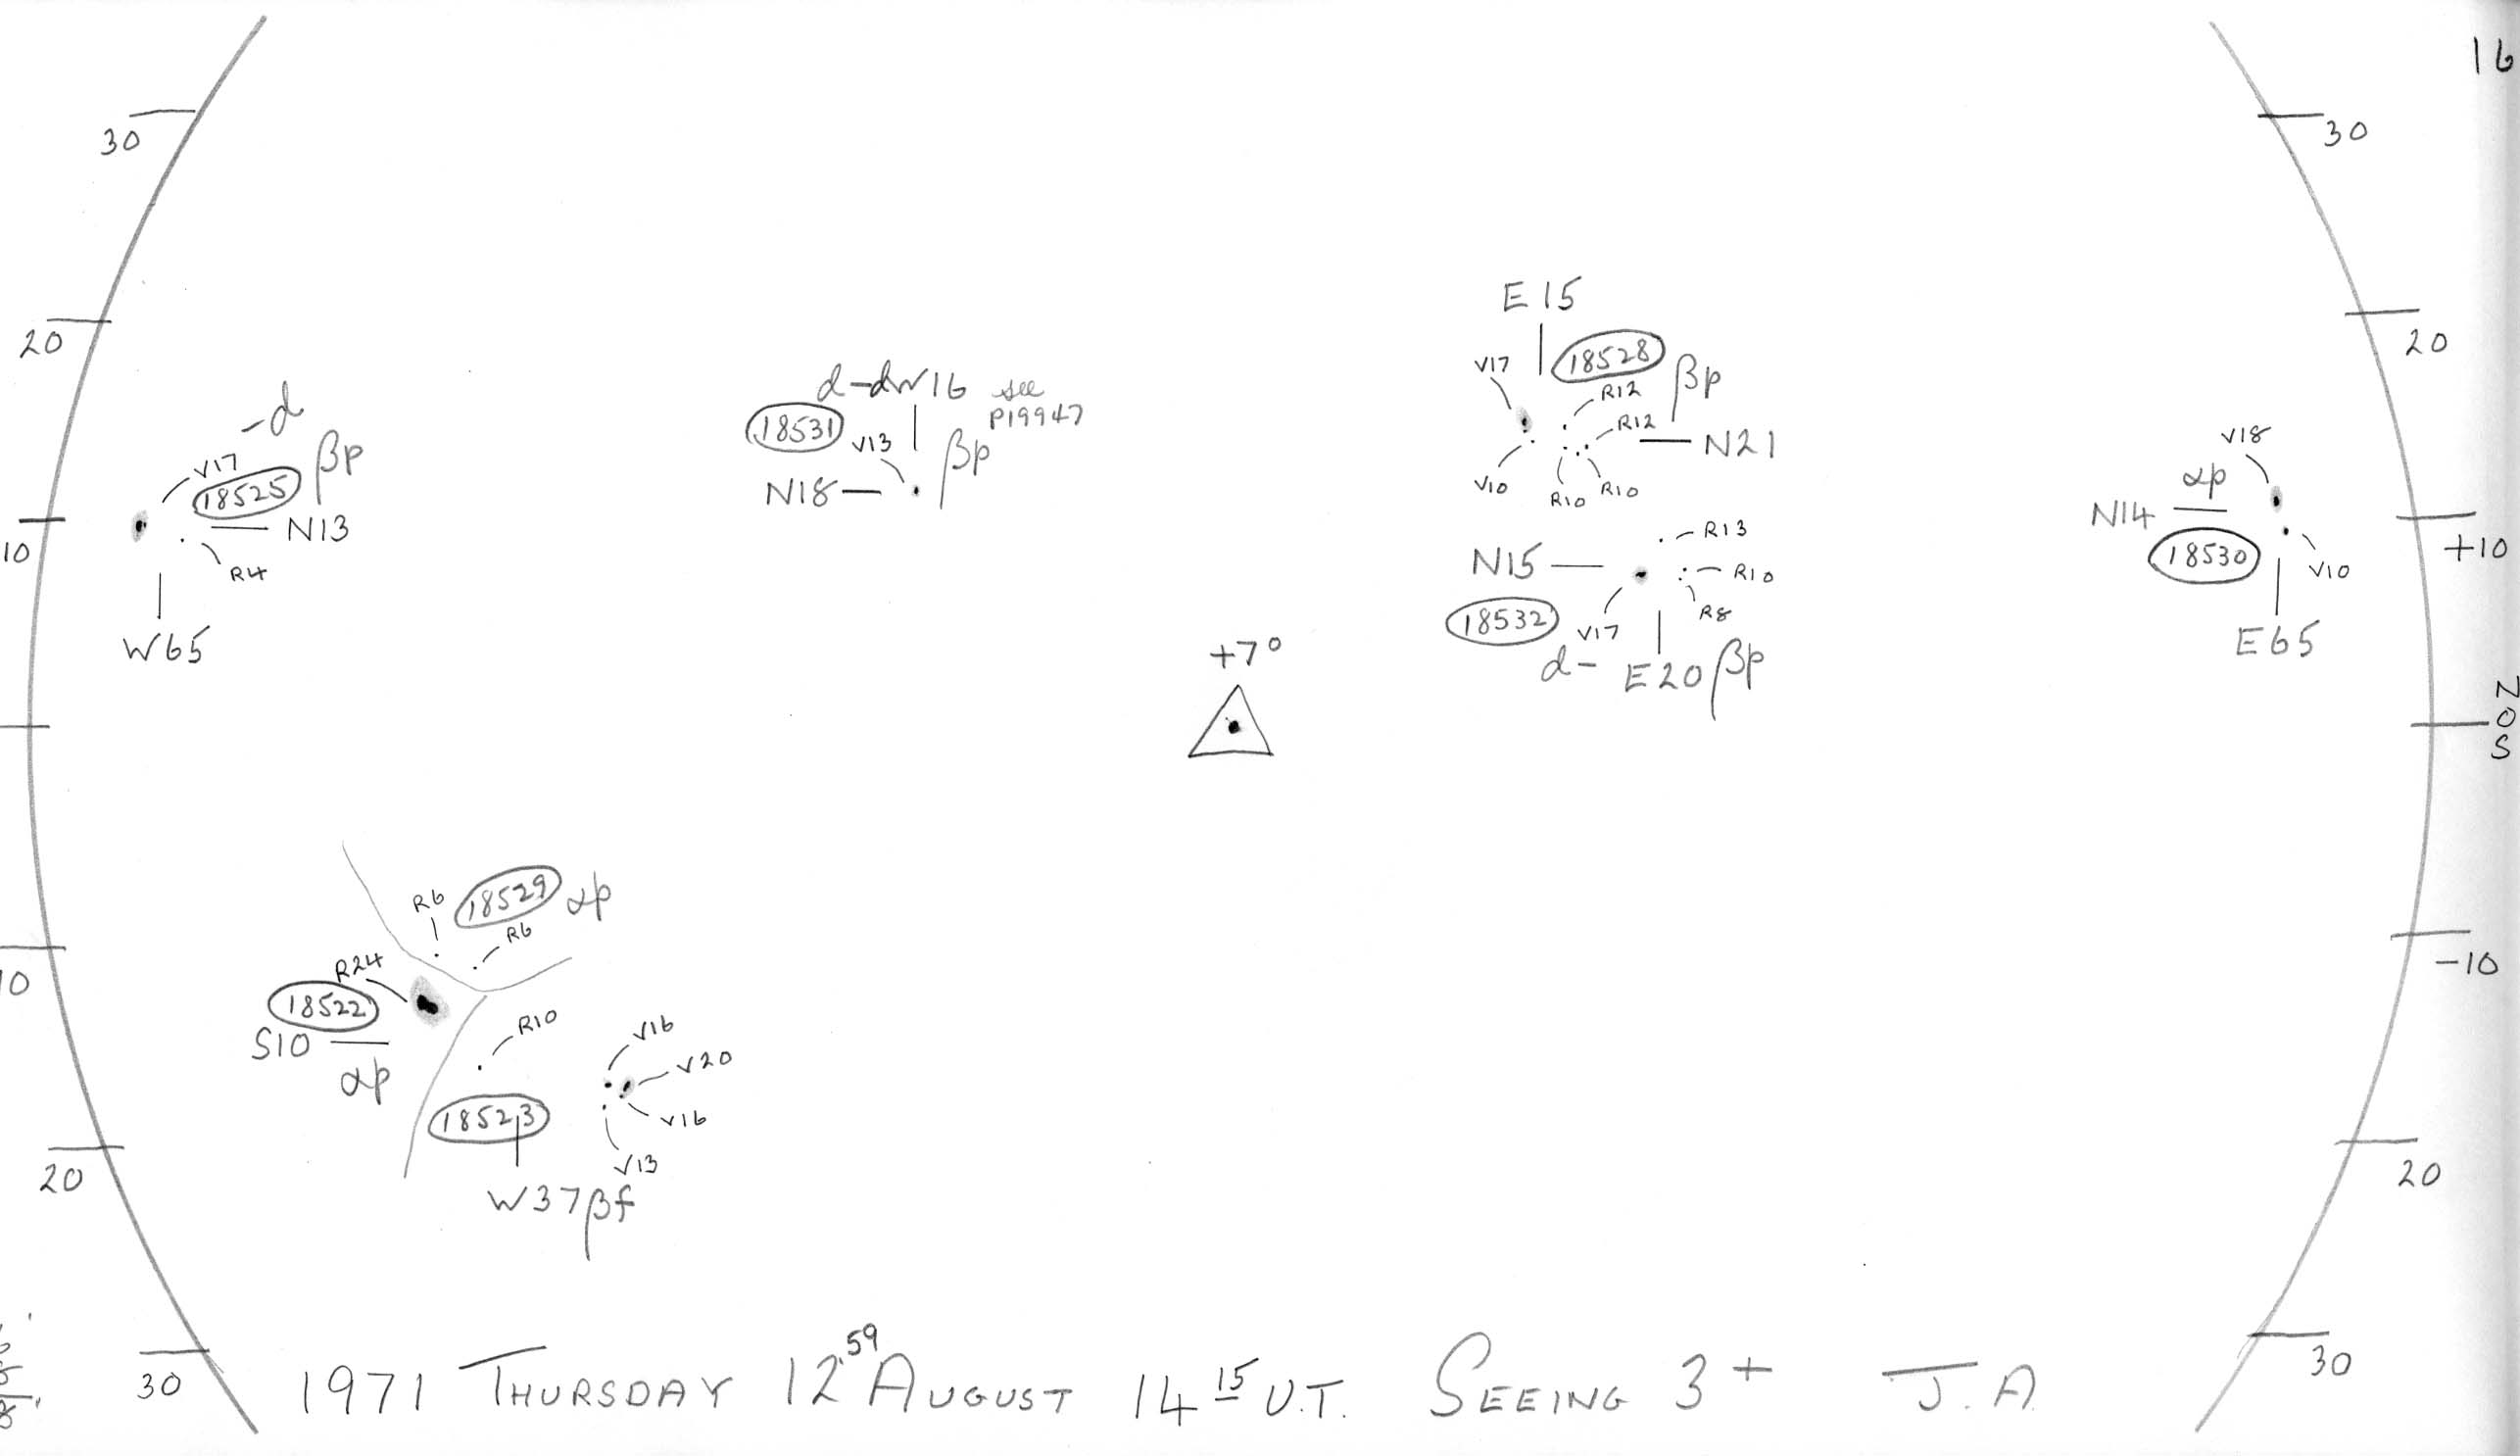 16
30
30
20
20
E15
V17
18528
βp
R12
R12
N21
V10
R10
R10
-d
V17
18525
βp
N13
R4
W65
10
d-dW16 see
P19947
18531
V13
βp
N18
V18
αp
N14
18530
V10
E65
+10
R13
N15
R10
R8
18532
V17
d-
E20 βp
+7°
N
O
S
R6
18529
αp
R6
R24
18522
S10
αp
10
-10
R10
V16
V20
V16
V13
18523
W37βf
20
20
30
30
1971 THURSDAY 12.59 AUGUST 14 15 U.T. SEEING 3+ J.A.